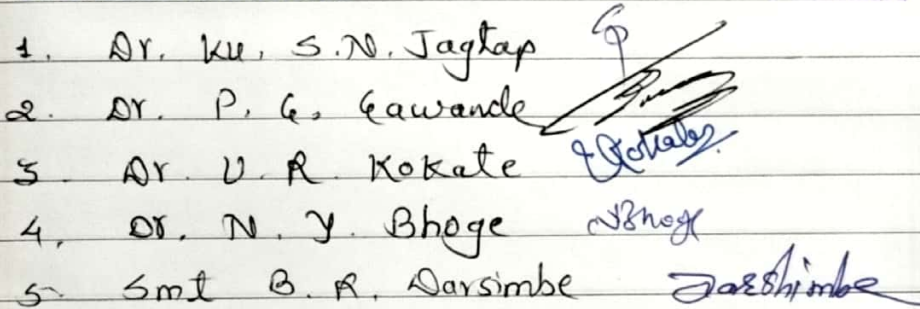 1. Dr. Ku. S.N. Jagtap
2. Dr. P. G. Gawande
3. Dr. U. R. Kokate Kokate
4. Dr. N. Y. Bhoge NBhoge
5 Smt B. R. Darsimbe Darshimbe